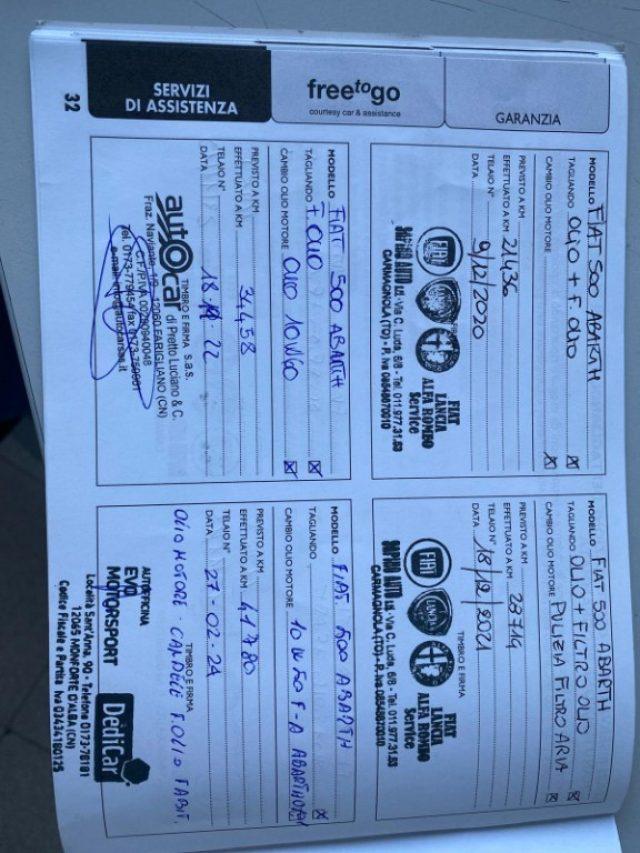 32
SERVIZI
DI ASSISTENZA
freetogo
courtesy car & assistance
GARANZIA
MODELLO FIAT 500 ABARTH
TAGLIANDO OLIO + F. OLIO
CAMBIO OLIO MOTORE
PREVISTO A KM
EFFETTUATO A KM 21436
TELAIO N°
DATA 9/12/2020
FIAT
LANCIA
ALFA ROMEO
Service
CARMAGNOLA (TO) - P. Iva 08548870010
MODELLO FIAT 500 ABARTH
TAGLIANDO OLIO + FILTRO OLIO
CAMBIO OLIO MOTORE PULIZIA FILTRO ARIA
PREVISTO A KM
EFFETTUATO A KM 28714
TELAIO N°
DATA 18/12/2021
TIMBRO E FIRMA
FIAT
FIAT
LANCIA
ALFA ROMEO
Service
CARMAGNOLA (TO) - P. Iva 08548870010
MODELLO FIAT 500 ABARTH
TAGLIANDO F. OLIO
CAMBIO OLIO MOTORE OLIO 10W60
PREVISTO A KM
EFFETTUATO A KM 34458
TELAIO N°
DATA 22
TIMBRO E FIRMA
autOcar s.a.s.
di Pretto Luciano & C.
Fraz. Naviante, 12060 FARIGLIANO (CN)
MODELLO FIAT 500 ABARTH
TAGLIANDO
CAMBIO OLIO MOTORE 10W50 F-A ABARTH
PREVISTO A KM
EFFETTUATO A KM 41780
TELAIO N°
DATA 27-02-24
TIMBRO E FIRMA
OLIO MOTORE F.OLIO
AUTOFFICINA
EVO
MOTORSPORT
DediCar
Località Sant'Anna, 90 - Telefono 0173-78191
12065 MONFORTE D'ALBA (CN)
Codice Fiscale e Partita Iva 03434180125